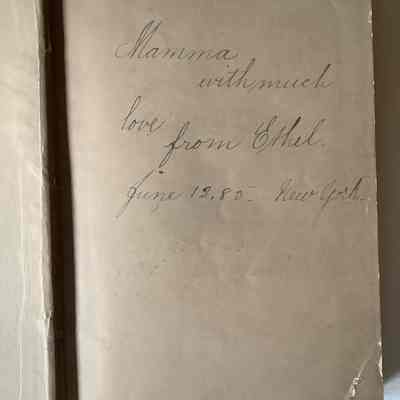 Mamma
with much
love
from Ethel.
June 12. 85. New York.